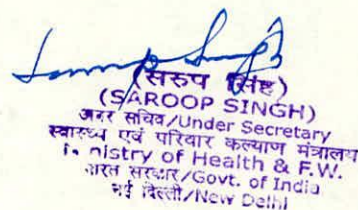 (सरुप सिंह)
(SAROOP SINGH)
अवर सचिव/Under Secretary
स्वास्थ्य एवं परिवार कल्याण मंत्रालय
nistry of Health & F.W.
भारत सरकार/Govt. of India
नई दिल्ली/New Delhi